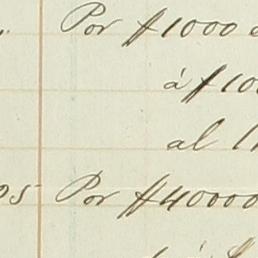 Por $1000
á $10
al
05 Por $40000